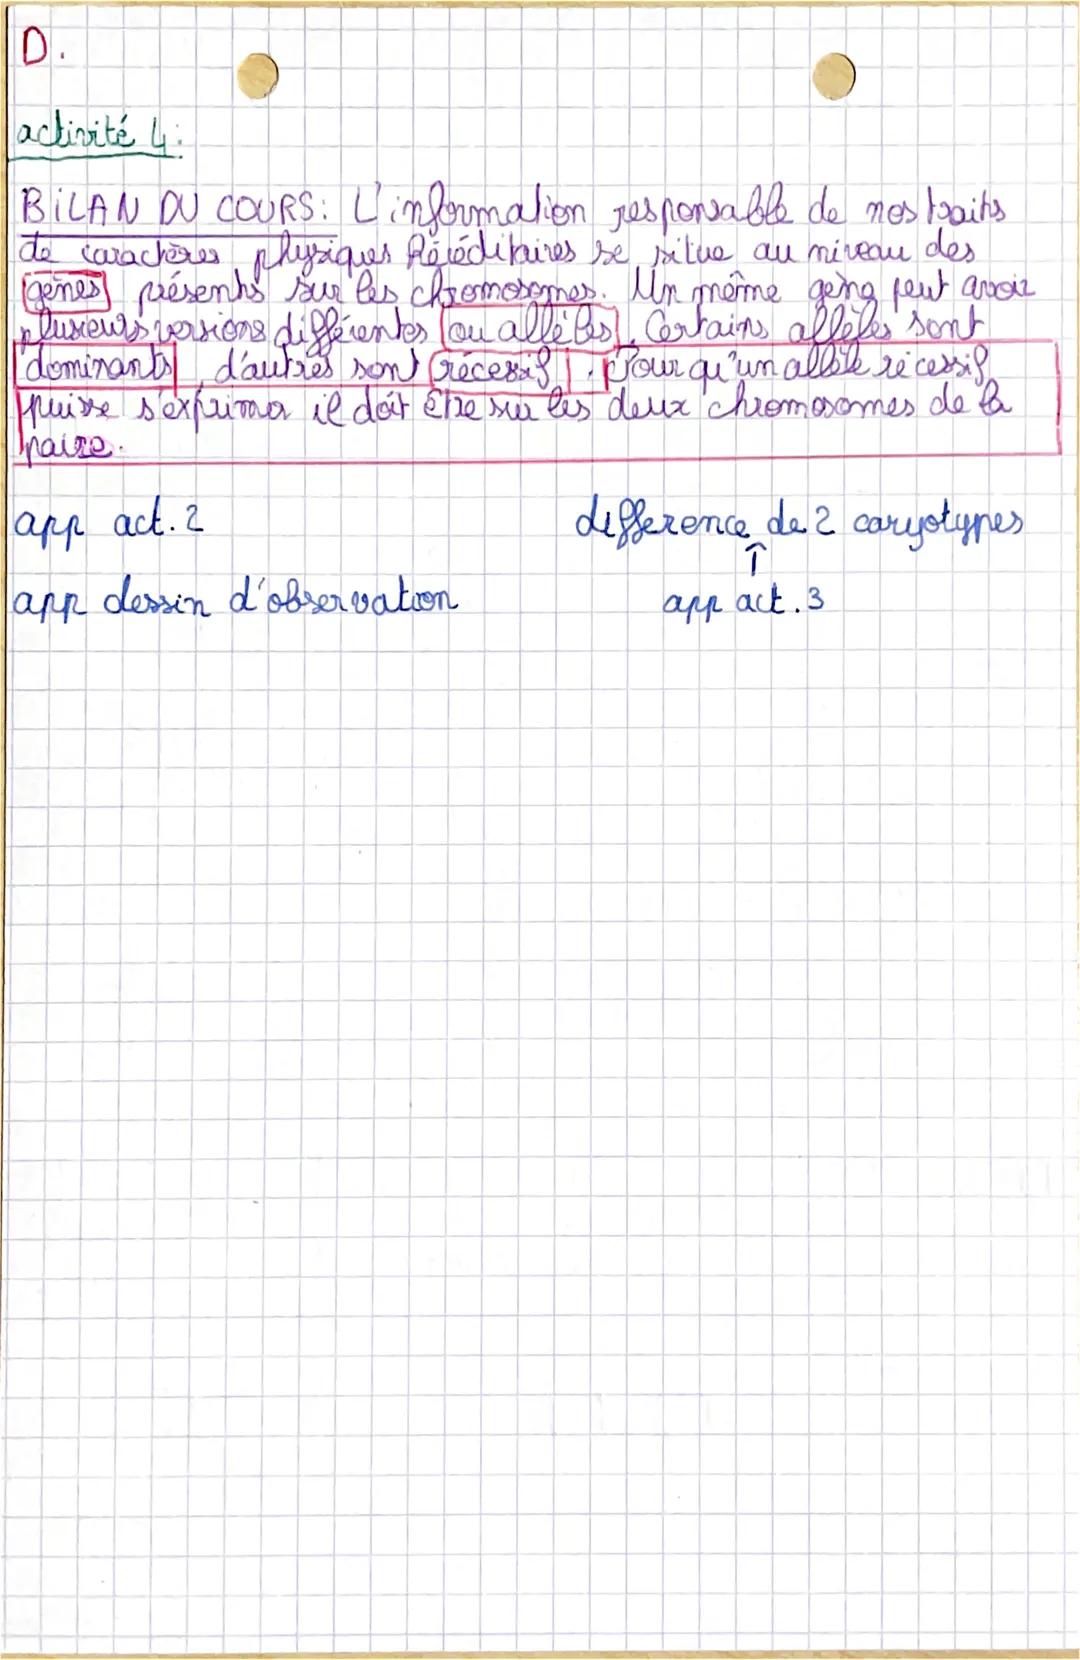 D.
activité 4:
BILAN DU COURS: L'information responsable de nos traits
de caractères physiques héréditaires se situe au niveau des
gènes présents sur les chromosomes. Un même gène peut avoir
plusieurs versions différentes ou allèles. Certains allèles sont
dominants, d'autres sont récessif. Pour qu'un allèle récessif
puisse s'exprimer il doit être sur les deux chromosomes de la
paire.
app act. 2
difference de 2 caryotypes
app dessin d'observation
app act. 3